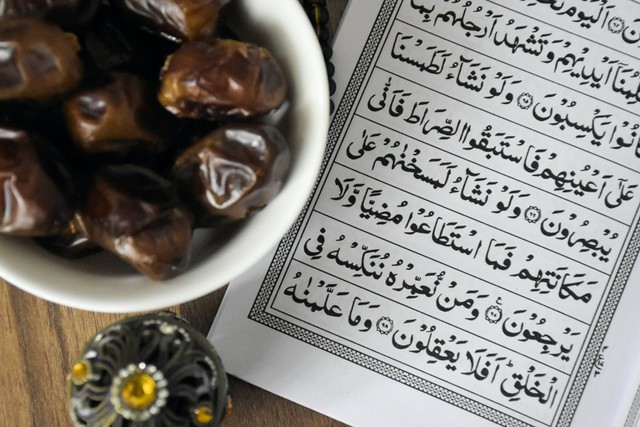 اَلْيَوْمَ
اَيْدِيْهِمْ وَتَشْهَدُ اَرْجُلُهُمْ بِمَا
كَانُوْا يَكْسِبُوْنَ ۝۶۵ وَلَوْ نَشَآءُ لَطَمَسْنَا
عَلٰٓى اَعْيُنِهِمْ فَاسْتَبَقُوا الصِّرَاطَ فَاَنّٰى
يُبْصِرُوْنَ ۝۶۶ وَلَوْ نَشَآءُ لَمَسَخْنٰهُمْ عَلٰى
مَكَانَتِهِمْ فَمَا اسْتَطَاعُوْا مُضِيًّا وَّلَا
يَرْجِعُوْنَ ۝۶۷ وَمَنْ نُّعَمِّرْهُ نُنَكِّسْهُ فِى
الْخَلْقِ اَفَلَا يَعْقِلُوْنَ ۝۶۸ وَمَا عَلَّمْنٰهُ